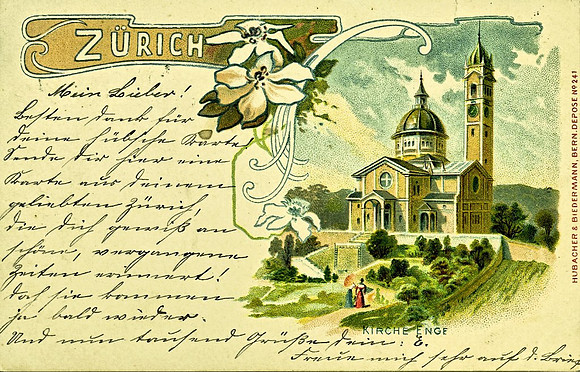 ZÜRICH
Mein Lieber!
Besten Dank für
deine hübsche Karte!
Sende dir hier eine
Karte aus deinem
geliebten Zürich,
die dich gewiß an
schöne, vergangene
Zeiten erinnert!
doch sie kommen
ja bald wieder.
Und nun tausend Grüße dein: E.
Freue mich sehr auf d. Brief
KIRCHE ENGE
HUBACHER & BIEDERMANN, BERN. DEPOSE. Nº 241